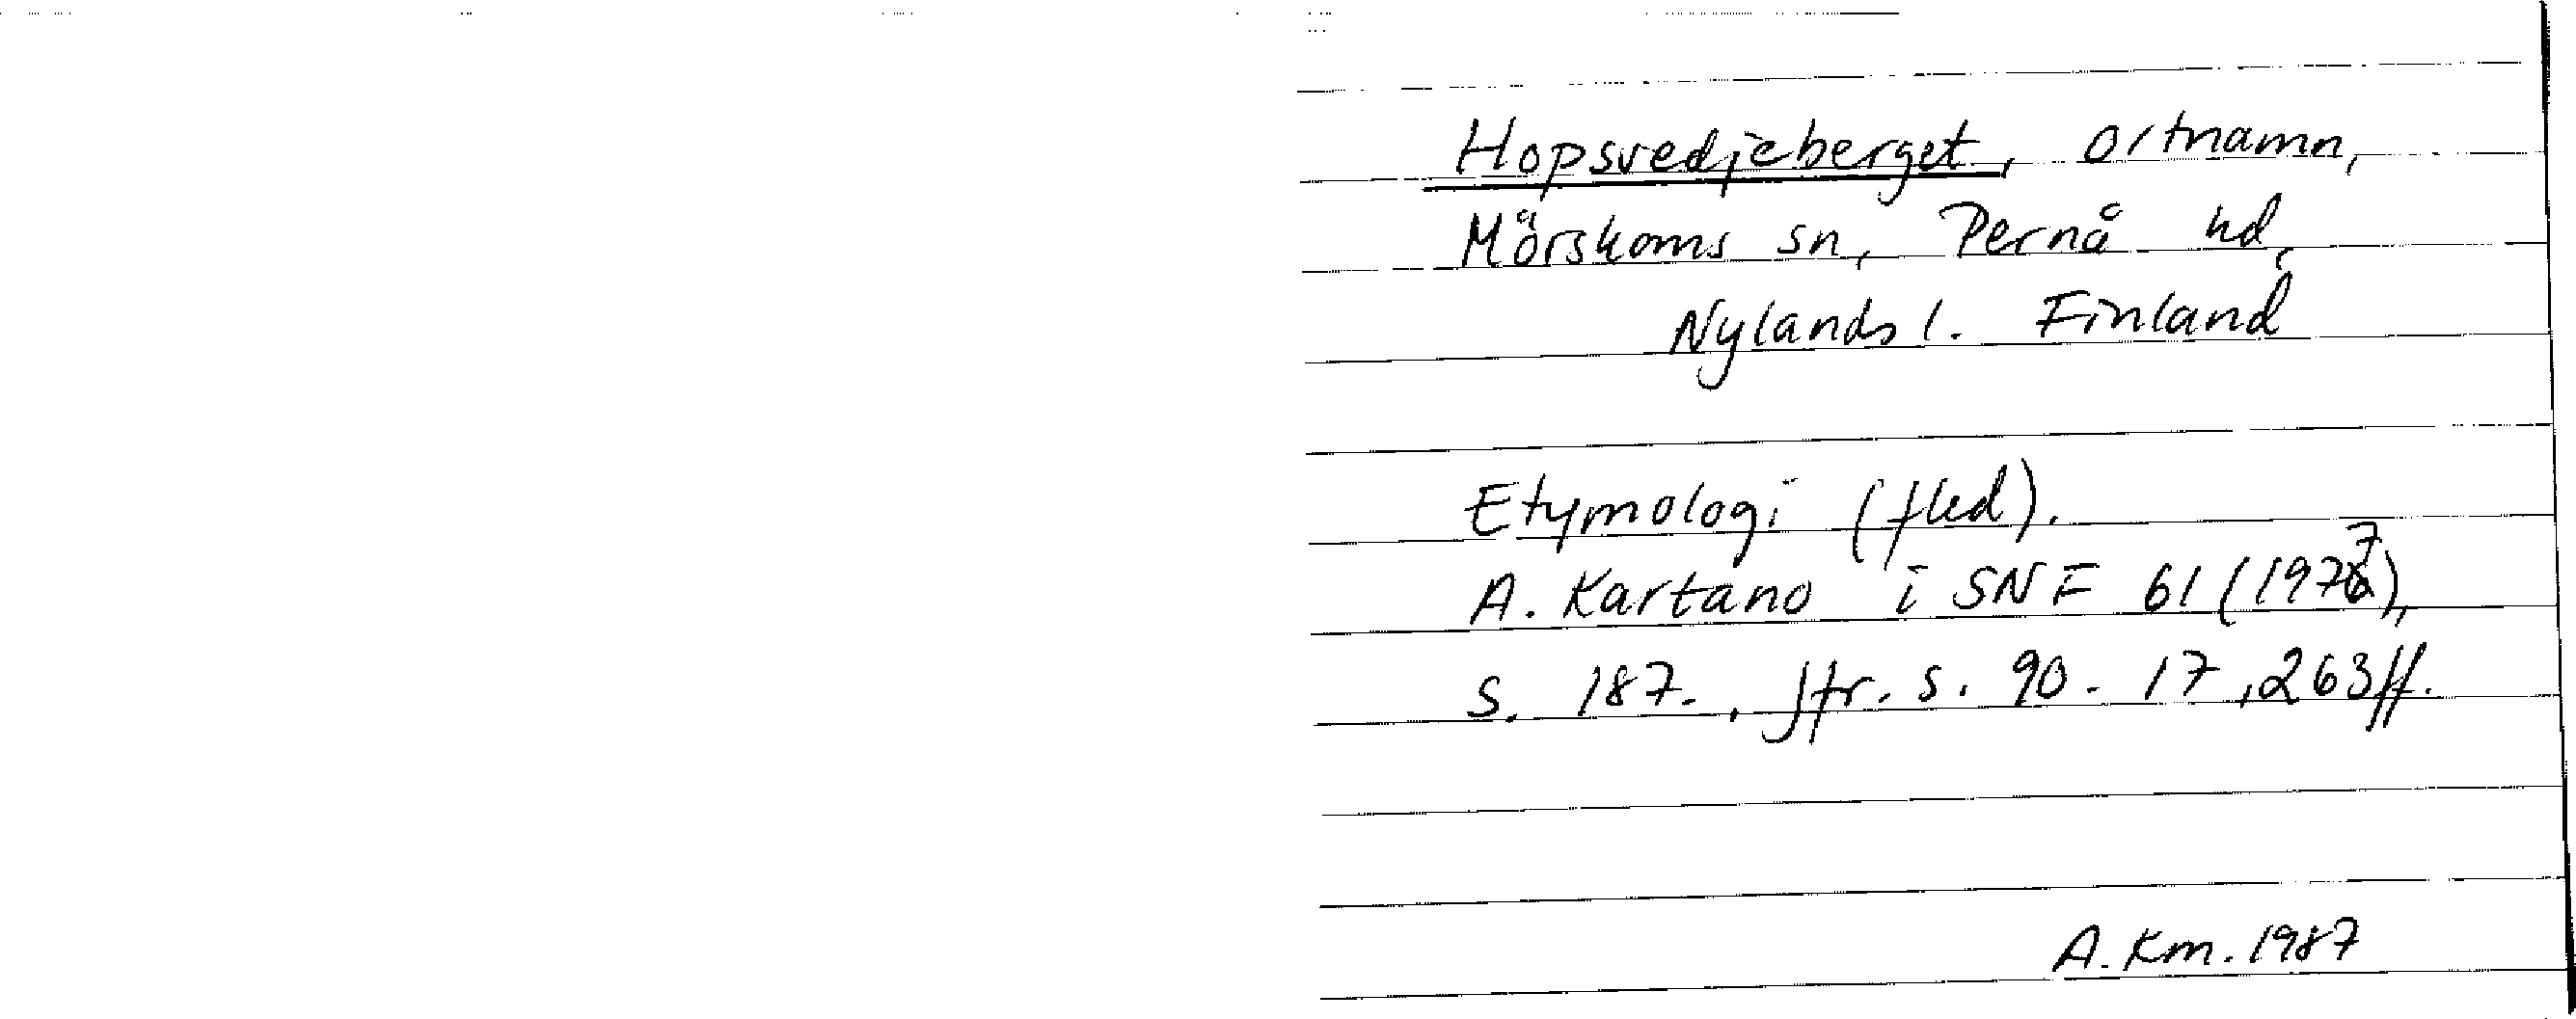 Hopsvedjeberget, ortnamn,
Mörskoms sn, Pernå hd,
Nylands l. Finland
Etymologi (fled).
A. Kartano i SNF 61 (1977),
s. 187., jfr. s. 90. 17, 263ff.
A. Km. 1987